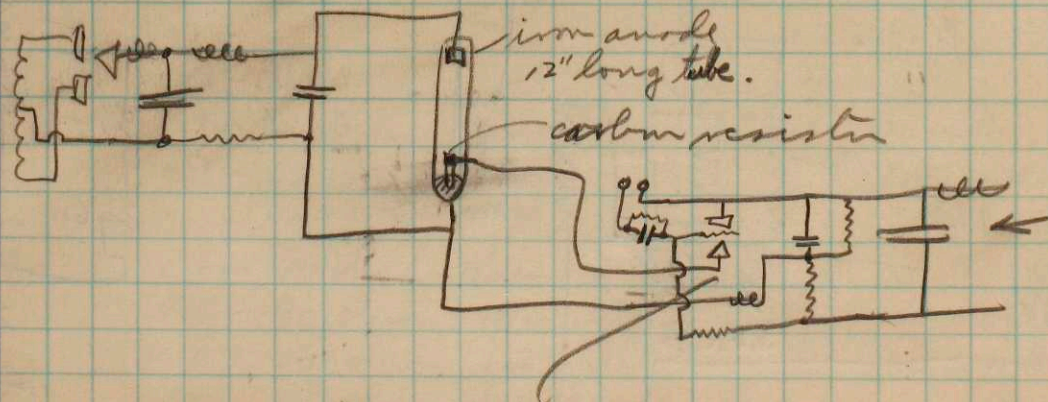 iron anode
12" long tube.
carbon resistor